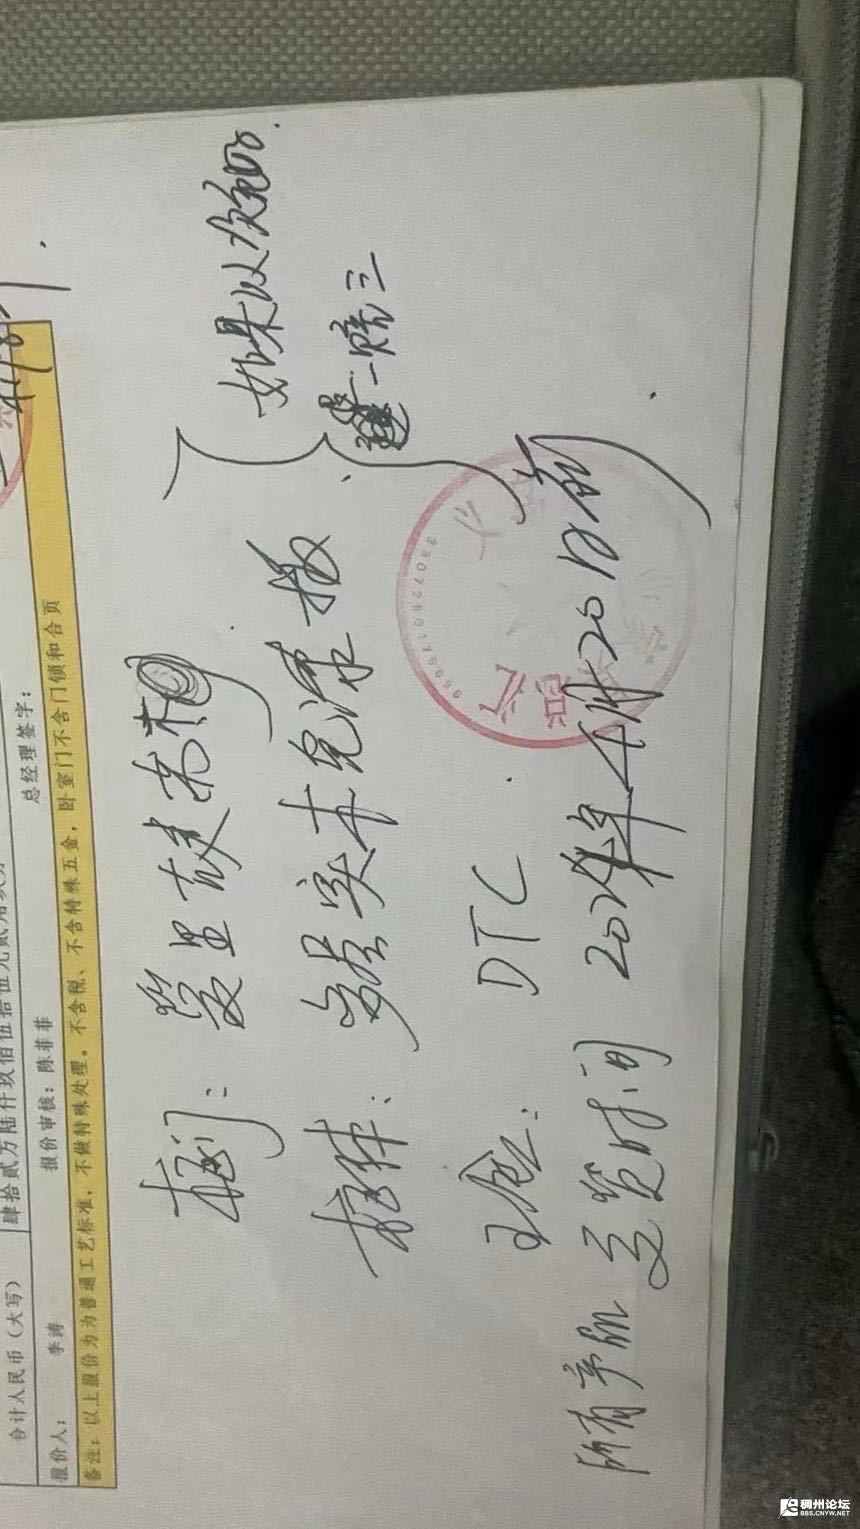 合计人民币（大写） 肆拾贰万陆仟玖佰伍拾伍元贰角
报价人： 李涛 报价审核：陈菲菲 总经理签字：
备注：以上报价为为普通工艺标准，不做特殊处理。不含税、不含特殊五金，卧室门不含门锁和合页
柜门：
如果以次充好
柜体：实木免漆板
一赔三
五金：DTC
所有产品交货时间 2024年4月20日前
稠州论坛
BBS.CNYW.NET